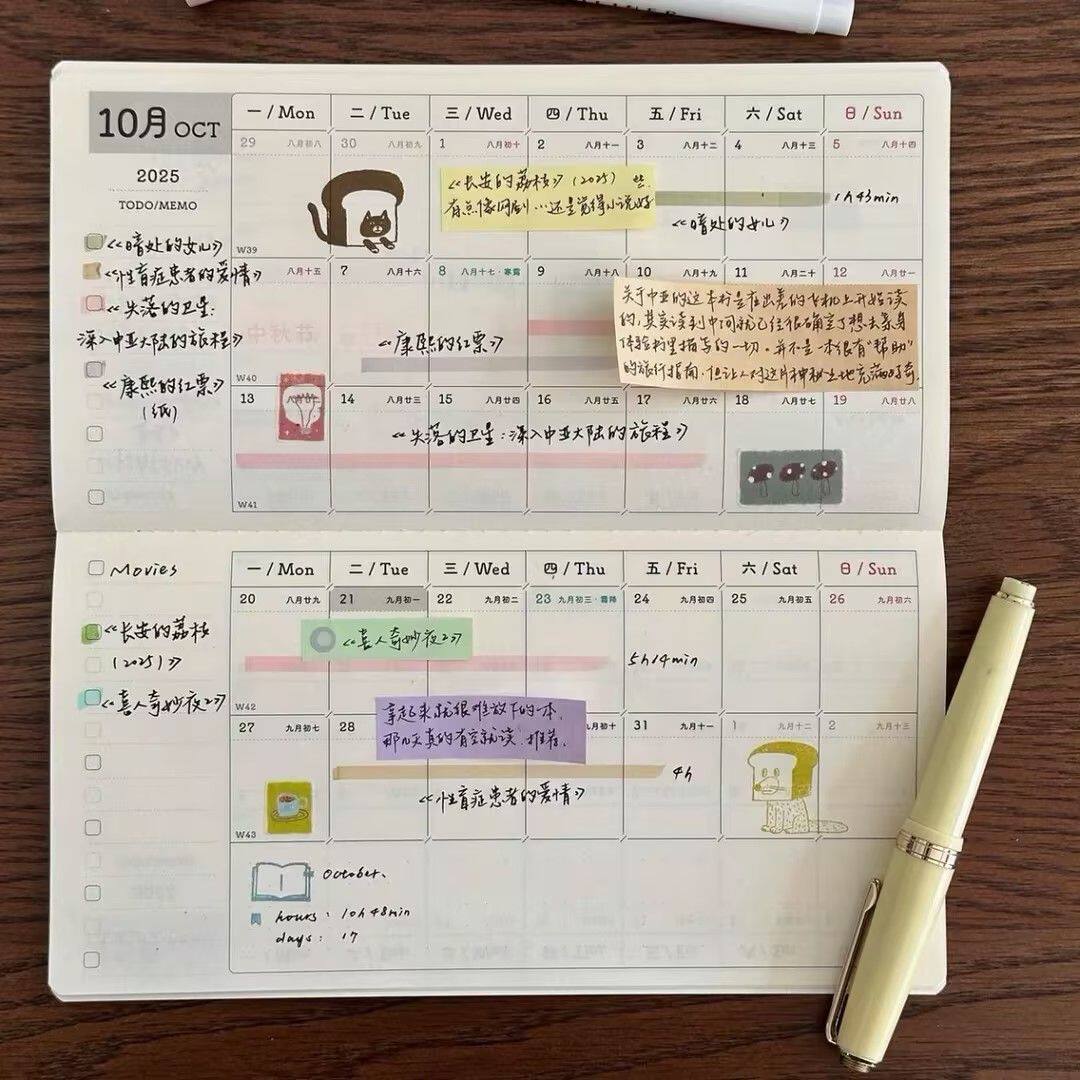 10月 OCT
2025
TODO/MEMO
《暗处的女儿》
《性育症患者的爱情》
《失落的卫星:
深入中亚大陆的旅程》
《康熙的红票》
(纸)
一/Mon 二/Tue 三/Wed 四/Thu 五/Fri 六/Sat 日/Sun
29 八月初八 30 八月初九 1 八月初十 2 八月十一 3 八月十二 4 八月十三 5 八月十四
《长安的荔枝》(2025)
有点像网剧…还是觉得小说好
1h43min
《暗处的女儿》
W39
八月十五 7 八月十六 8 八月十七·寒露 9 八月十八 10 八月十九 11 八月二十 12 八月廿一
关于中亚的这本书是在出差的飞机上开始读
的,其实读到中间就已经很确定了想去亲身
体验书里描写的一切.并不是一本很有“帮助”
的旅行指南.但让人对这片神秘土地充满好奇.
中秋节
《康熙的红票》
W40
13 14 八月廿三 15 八月廿四 16 八月廿五 17 八月廿六 18 八月廿七 19 八月廿八
《失落的卫星:深入中亚大陆的旅程》
W41
Movies
《长安的荔枝
(2025)》
《喜人奇妙夜2》
一/Mon 二/Tue 三/Wed 四/Thu 五/Fri 六/Sat 日/Sun
20 八月廿九 21 九月初一 22 九月初二 23 九月初三·霜降 24 九月初四 25 九月初五 26 九月初六
《喜人奇妙夜2》
5h14min
W42
27 九月初七 28 九月初十 31 九月十一 1 九月十二 2 九月十三
拿起来就很难放下的一本,
那几天真的有空就读.推荐.
4h
《性育症患者的爱情》
W43
October.
hours: 10h48min
days: 17